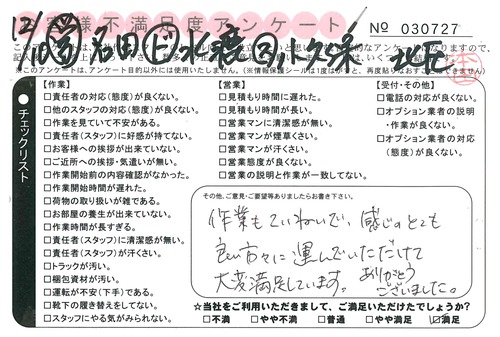 お客様不満足度アンケート
No 030727
※このアンケートは、アンケート目的以外には使用いたしません。(※情報保護シールは1度はがすと、再度貼りなおすことはできません)
チェックリスト
【作業】
□責任者の対応(態度)が良くない。
□他のスタッフの対応(態度)が良くない。
□作業を見ていて不安がある。
□責任者(スタッフ)に好感が持てない。
□お客様への挨拶が出来ていない。
□ご近所への挨拶・気遣いが無い。
□作業開始前の内容確認がなかった。
□作業開始時間が遅れた。
□荷物の取り扱いが雑である。
□お部屋の養生が出来ていない。
□作業時間が長すぎる。
□責任者(スタッフ)に清潔感が無い。
□責任者(スタッフ)が汗くさい。
□トラックが汚い。
□梱包資材が汚い。
□運転が不安(下手)である。
□靴下の履き替えをしてない。
□スタッフにやる気がみられない。
【営業】
□見積もり時間に遅れた。
□見積もり時間が長い。
□営業マンに清潔感が無い。
□営業マンが煙草くさい。
□営業マンが汗くさい。
□営業態度が良くない。
□営業の説明と作業が一致してない。
【受付・その他】
□電話の対応が良くない。
□オプション業者の説明
・作業が良くない。
□オプション業者の対応
(態度)が良くない。
その他、ご意見・ご要望等ありましたらお書き下さい。
作業もていねいで、感じのとても
良い方々に運んでいただけて
大変満足しています。ありがとう
ございました。
☆当社をご利用いただきまして、ご満足いただけたでしょうか?
□不満 □やや不満 □普通 □やや満足 ☑満足